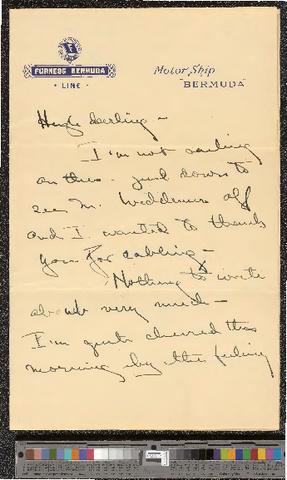 FURNESS BERMUDA
LINE
Motor Ship
"BERMUDA"
Hugh darling –
I'm not sailing
on this – just down to
see M. off
and I wanted to thank
you for cabling –
Nothing to write
about very much –
I'm quite cheered this
morning by the feeling